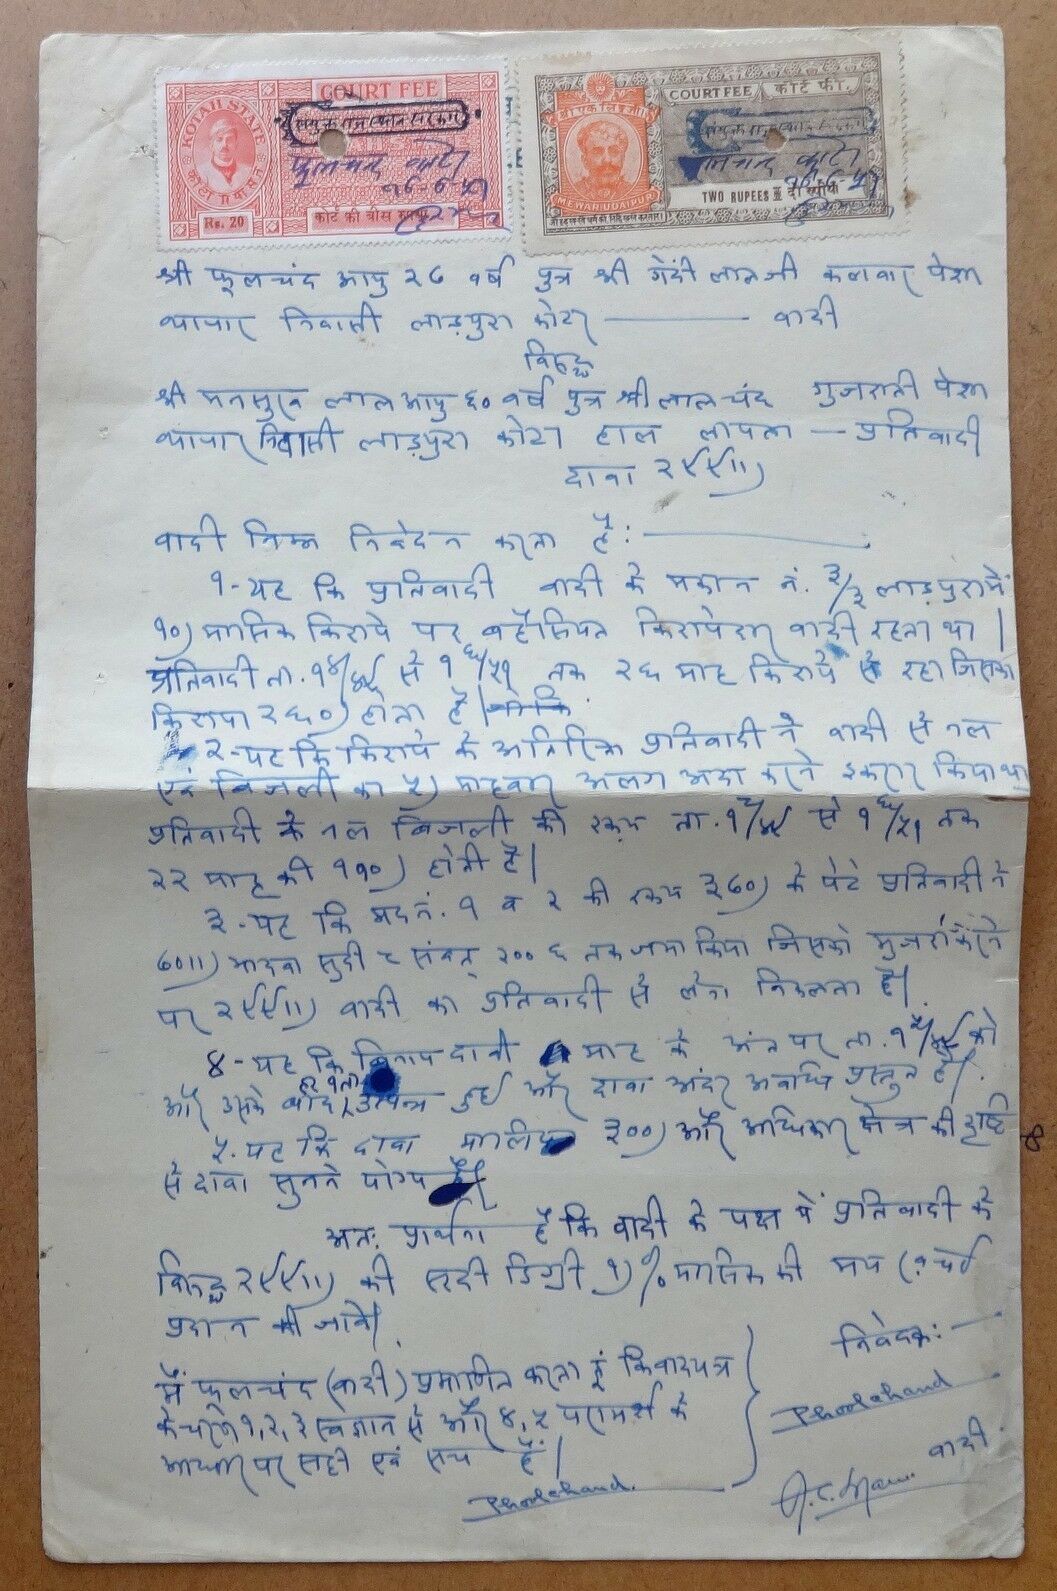 KOTAH STATE
COURT FEE
संयुक्त राजस्थान सरकार
फूलचन्द कोटा
१६-६-५१
Rs. 20
कोर्ट फी बीस रुपया
श्री एकलिङ्गजी
COURT FEE कोर्ट फी.
संयुक्त राजस्थान सरकार
फूलचन्द कोटा
१६-६-५१
TWO RUPEES दो रुपीया
MEWAR UDAIPUR
श्री फूलचंद आयु २८ वर्ष पुत्र श्री गेंदी लालजी कलवार पेशा
व्यापार निवासी लाड़पुरा कोटा ——— वादी
विरुद्ध
श्री मनसुख लाल आयु ६० वर्ष पुत्र श्री लाल चंद गुजराती पेशा
व्यापार निवासी लाड़पुरा कोटा हाल लापता — प्रतिवादी
दावा २९९॥)
वादी निम्न निवेदन करता है:———
१-यह कि प्रतिवादी वादी के मकान नं. ३/३ लाड़पुरा में
१०) मासिक किराये पर बहैसियत किरायेदार वादी रहता था।
प्रतिवादी ता. १४/४९ से १६/५१ तक २६ माह किराये से रहा जिसका
किराया २६०) होता है।
२-यह कि किराये के अतिरिक्त प्रतिवादी ने वादी से नल
एवं बिजली का ५) माहवार अलग अदा करने इकरार किया था
प्रतिवादी के नल बिजली की रकम ता. १८/४९ से १६/५१ तक
२२ माह की ११०) होती है।
३-यह कि मद नं. १ व २ की रकम ३७०) के पेटे प्रतिवादी ने
७०॥) भादवा सुदी ८ संवत् २००६ तक जमा किया जिसको मुजरा करने
पर २९९॥) वादी का प्रतिवादी से लेना निकलता है।
४-यह कि बिनाय दावी माह के अंत पर ता. को
और उसके बाद हर उत्पन्न हुई और दावा अंदर अवधि प्रस्तुत है।
५. यह कि दावा मालियत ३००) और अधिकार क्षेत्र की दृष्टि
से दावा सुनने योग्य है।
अतः प्रार्थना है कि वादी के पक्ष में प्रतिवादी के
विरुद्ध २९९॥) की डिग्री १)% मासिक की मय खर्चे
प्रदान की जावे।
निवेदक:—
मैं फूलचंद (वादी) प्रमाणित करता हूं कि वादपत्र
के चरण १, २, ३ स्वज्ञान से और ४, ५ परामर्श के
आधार पर सही एवं सच है।
Phoolchand
वादी
Phoolchand